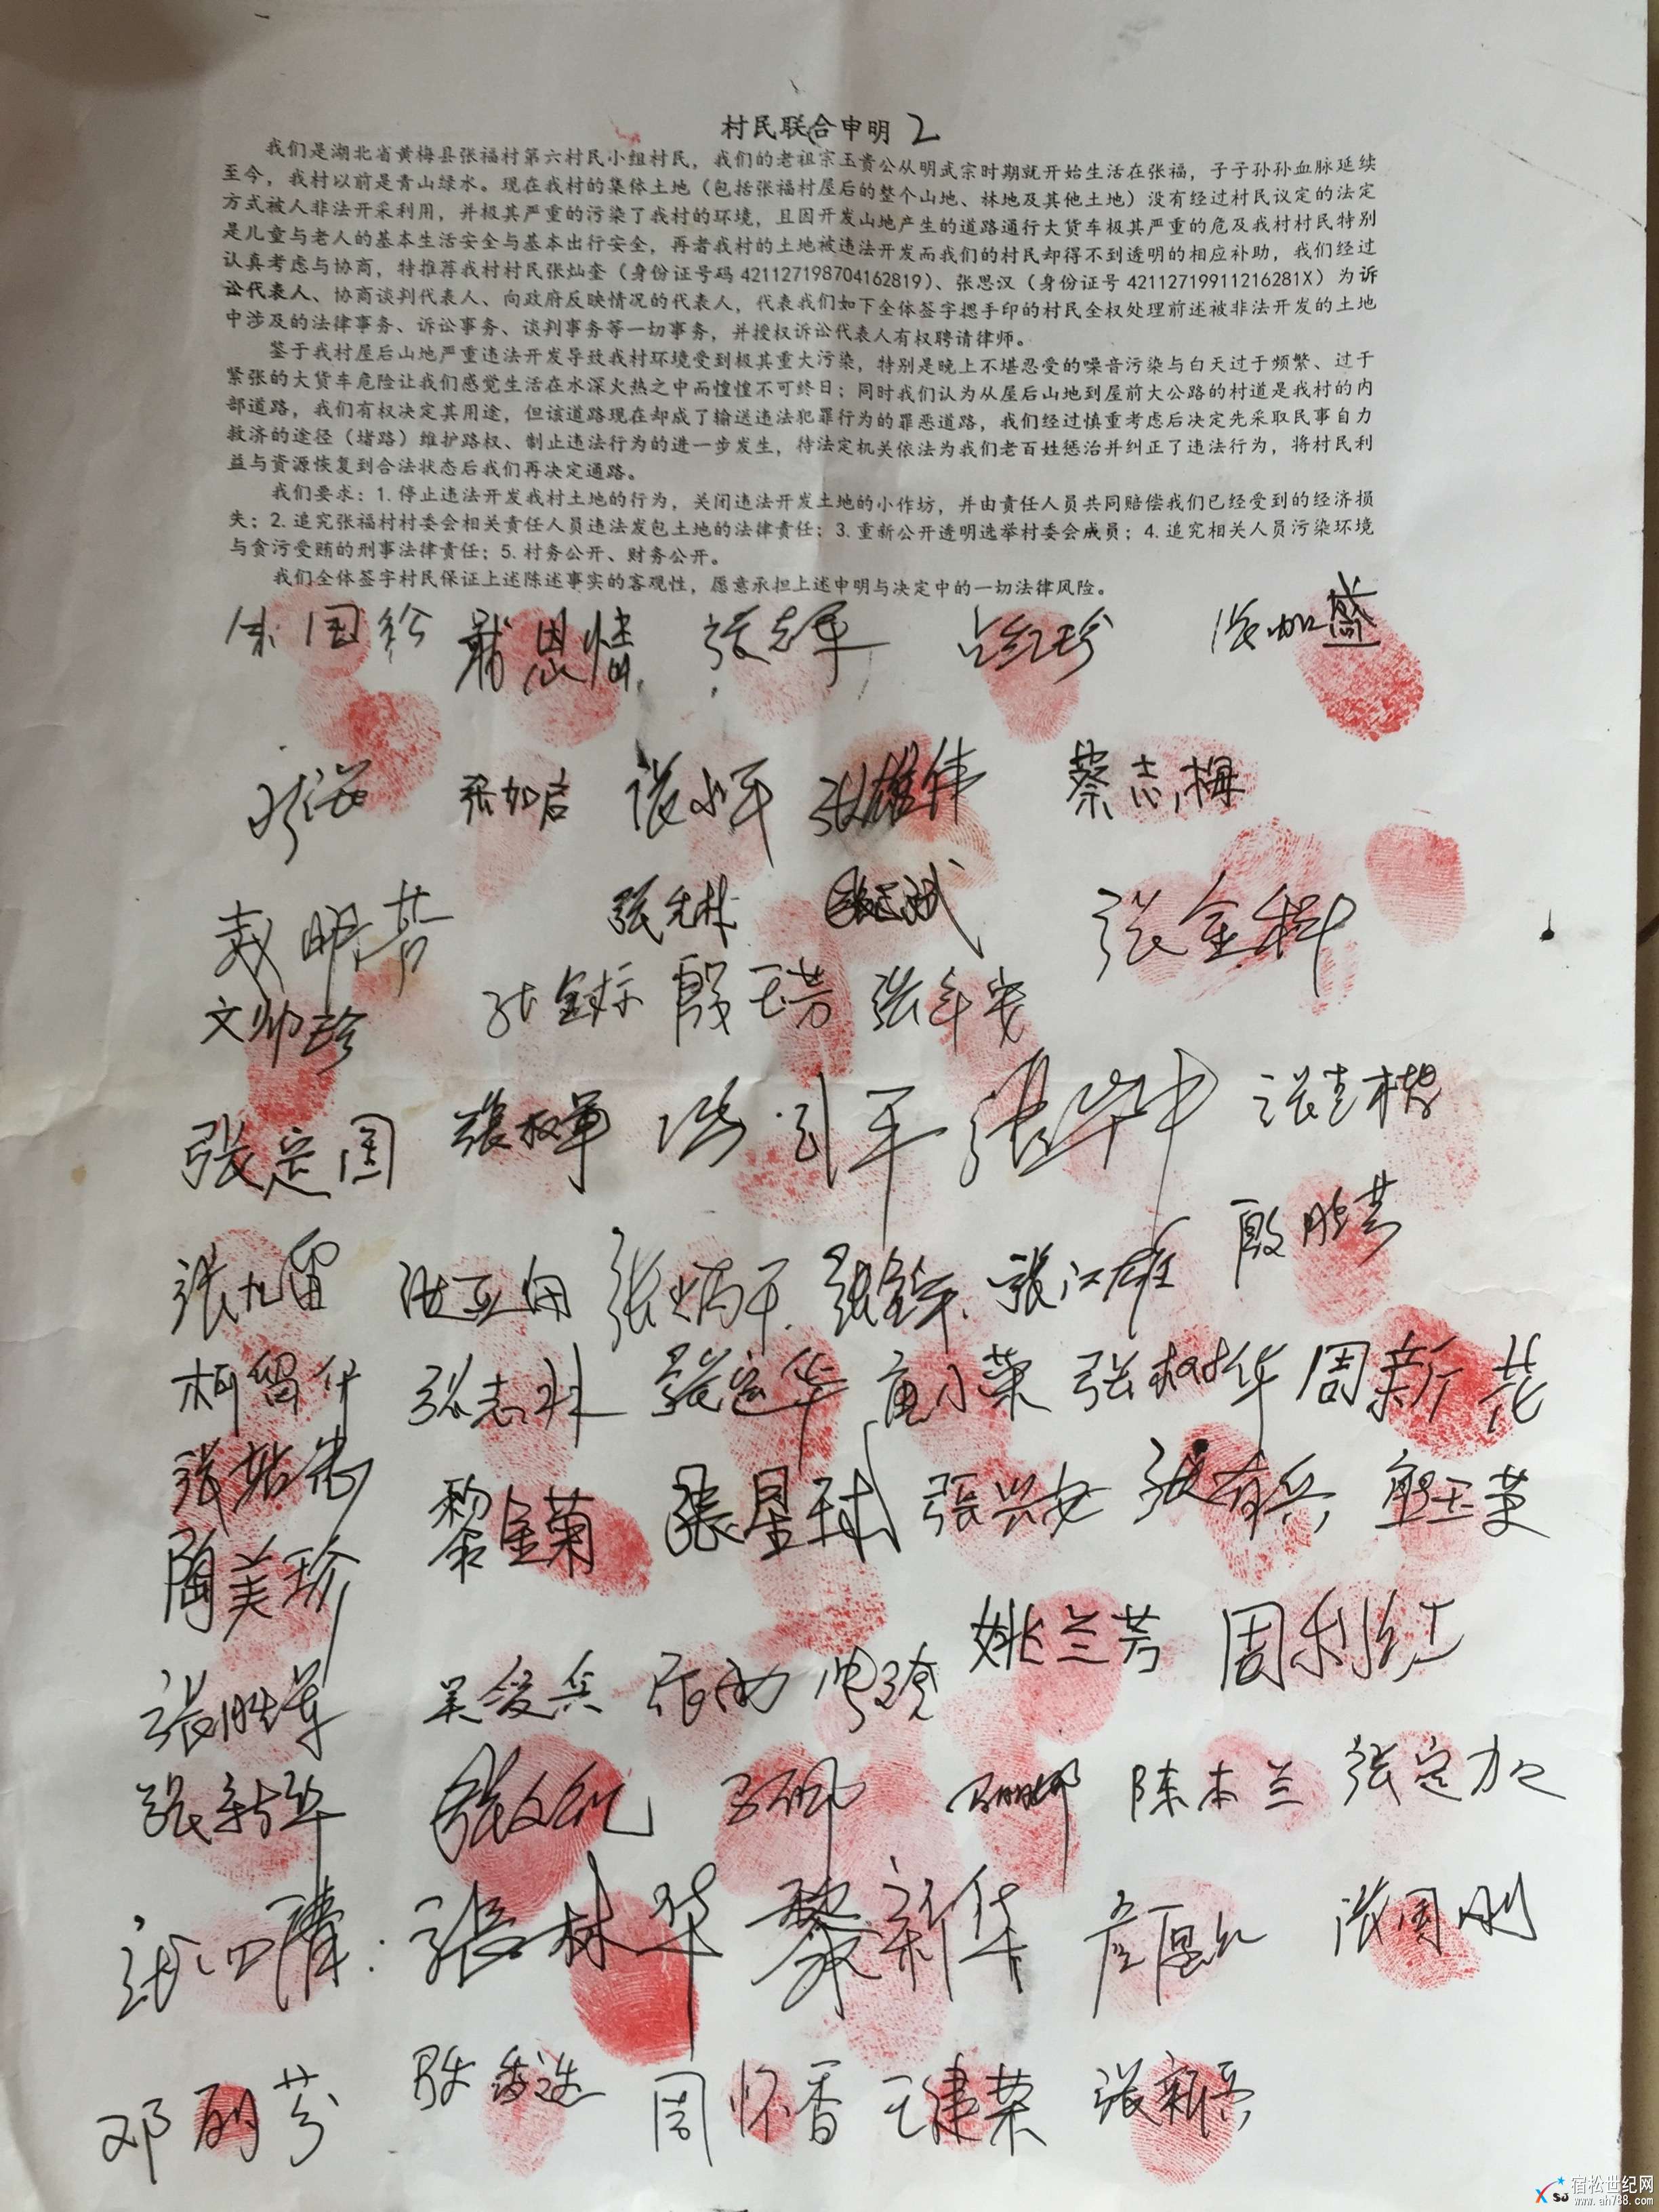 村民联合申明 2
我们是湖北省黄梅县张福村第六村民小组村民，我们的老祖宗玉贵公从明武宗时期就开始生活在张福，子子孙孙血脉延续
至今，我村以前是青山绿水。现在我村的集体土地（包括张福村屋后的整个山地、林地及其他土地）没有经过村民议定的法定
方式被人非法开采利用，并极其严重的污染了我村的环境，且因开发山地产生的道路通行大货车极其严重的危及我村村民特别
是儿童与老人的基本生活安全与基本出行安全，再者我村的土地被违法开发而我们的村民却得不到透明的相应补助，我们经过
认真考虑与协商，特推荐我村村民张灿奎（身份证号码 421127198704162819）、张思汉（身份证号 42112719911216281X）为诉
讼代表人、协商谈判代表人、向政府反映情况的代表人，代表我们如下全体签字摁手印的村民全权处理前述被非法开发的土地
中涉及的法律事务、诉讼事务、谈判事务等一切事务，并授权诉讼代表人有权聘请律师。
鉴于我村屋后山地严重违法开发导致我村环境受到极其重大污染，特别是晚上不堪忍受的噪音污染与白天过于频繁、过于
紧张的大货车危险让我们感觉生活在水深火热之中而惶惶不可终日；同时我们认为从屋后山地到屋前大公路的村道是我村的内
部道路，我们有权决定其用途，但该道路现在却成了输送违法犯罪行为的罪恶道路，我们经过慎重考虑后决定先采取民事自力
救济的途径（堵路）维护路权、制止违法行为的进一步发生，待法定机关依法为我们老百姓惩治并纠正了违法行为，将村民利
益与资源恢复到合法状态后我们再决定通路。
我们要求：1. 停止违法开发我村土地的行为，关闭违法开发土地的小作坊，并由责任人员共同赔偿我们已经受到的经济损
失；2. 追究张福村村委会相关责任人员违法发包土地的法律责任；3. 重新公开透明选举村委会成员；4. 追究相关人员污染环境
与贪污受贿的刑事法律责任；5. 村务公开、财务公开。
我们全体签字村民保证上述陈述事实的客观性，愿意承担上述申明与决定中的一切法律风险。
戴恩情 张志军 占红珍 张加盛
张加启 张小军 张雄伟 蔡志梅
张金科
文帅珍 殷玉芳
张定国 张权军 张引军 张华中
张九留 张炳千 张江雄 殷胜芳
柯留什 张志林 张定华 张树华 周新花
黎金菊 张星球 张兴安 张有兵
陶美珍 姚兰芳 周利红
张胜军 吴爱兵
张新华 张文亮 陈本兰 张定加
张四清 张林华 黎新华 张国刚
邓丽芬 周怀香 王建荣 张新亮
宿松世纪网
www.ah788.com